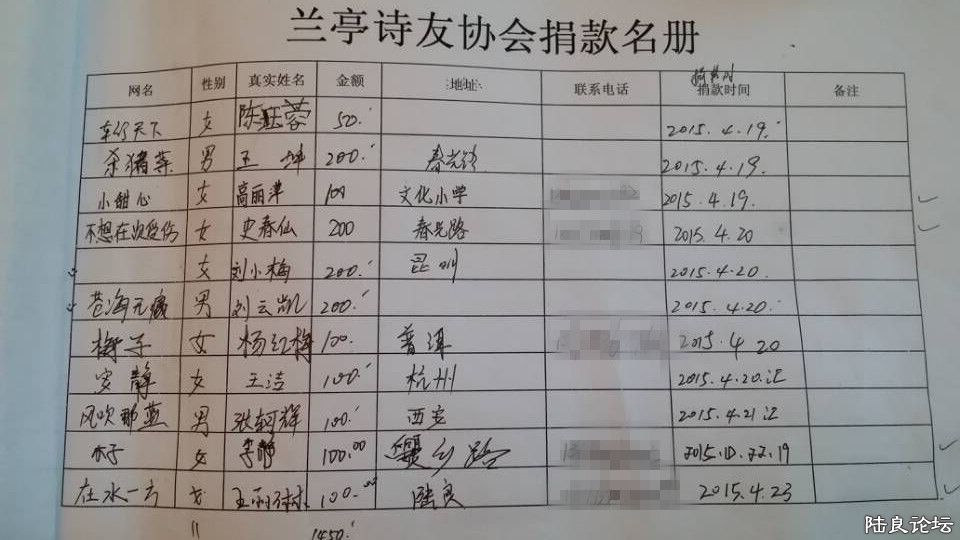 兰亭诗友协会捐款名册
网名 性别 真实姓名 金额 地址 联系电话 捐款时间 备注
车行天下 女 陈 蓉 50. 2015.4.19.
杀猪菜 男 王坤 200. 春光路 2015.4.19.
小甜心 女 高丽萍 100 文化小学 2015.4.19.
不想在次受伤 女 史春仙 200 春光路 2015.4.20
女 刘小梅 200. 昆明 2015.4.20.
苍海无痕 男 刘云凯 200. 2015.4.20.
梅子 女 杨红梅 100. 普洱 2015.4.20
安静 女 王洁 100. 杭州 2015.4.20.汇
风吹那蓝 男 张轲辉 100. 西安 2015.4.21汇
木子 女 李静 100.00 爨乡路
在水一方 女 王 100.00 陆良 2015.4.23
11 1450.
陆良论坛